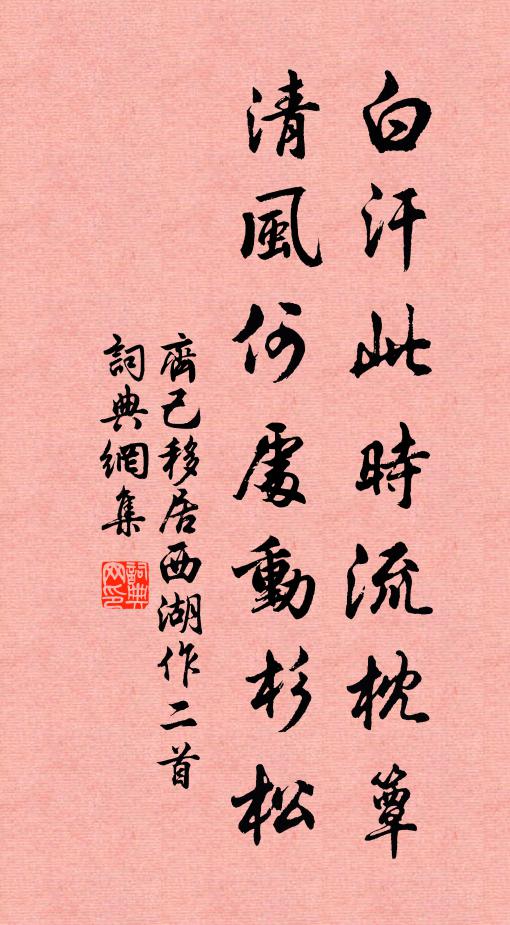 白汗此時流枕簟
清風何處動杉松
齊己移居西湖作二首
詞典網集
詞典網印